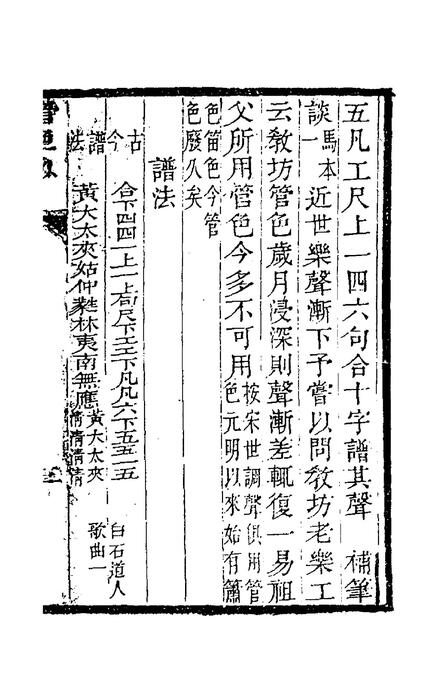 五凡工尺上一四六句合十字譜其聲 補筆
談一馬本近世樂聲漸下予嘗以問教坊老樂工
云教坊管色歲月浸深則聲漸差輒復一易祖
父所用管色今多不可用按宋世調聲俱用管
色元明以來始有簫
色笛色今管
色廢久矣
譜法
古今譜法
合下四四一上一上勾尺下工工下凡凡六下五五一五
黃大太夾姑仲蕤林夷南無應黃清大清太清夾清
白石道人
歌曲一